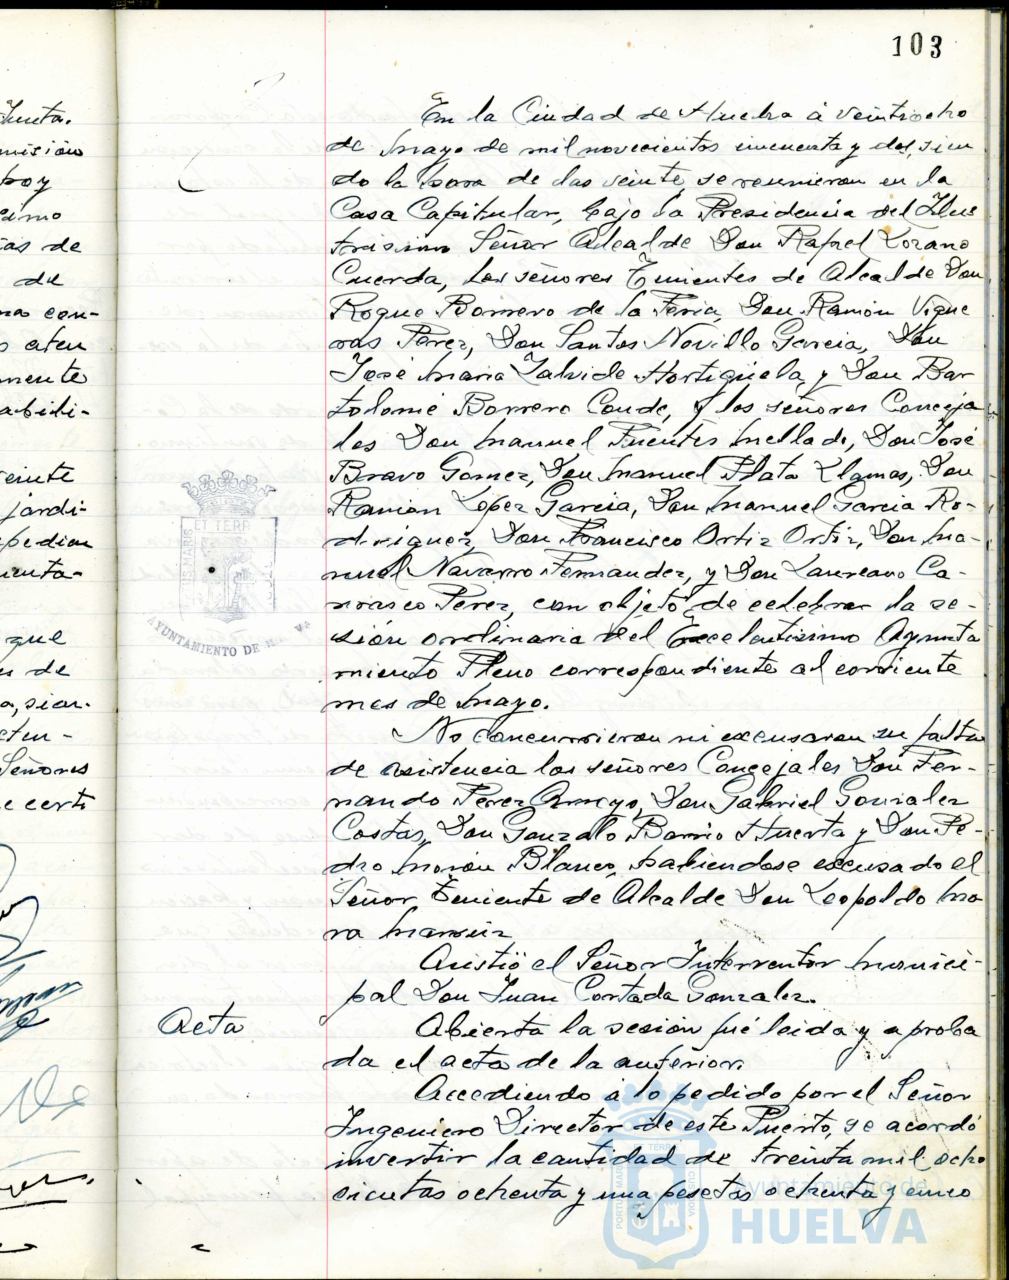 103
Junta.
misión
hoy
cimo
ias de
de
na con-
s aten
mente
abili-
reinte
jardi-
pedien
menta-
que
en de
o, sien-
cten-
Señores
e certi
En la Ciudad de Huelva á veintiocho
de Mayo de mil novecientos cincuenta y dos, sien
do la hora de las veinte, se reunieron en la
Casa Capitular, bajo la Presidencia del Ilus
trisimo Señor Alcalde Don Rafael Lozano
Cuerda, los señores Tenientes de Alcalde Don
Roque Borrero de la Feria, Don Ramón Vigue
ras Perez, Don Santos Novillo Garcia, Don
José Maria Zalvide Hortigüela, y Don Bar
tolomé Borrero Conde, y los señores Conceja
les Don Manuel Fuentes Mellado, Don José
Bravo Gomez, Don Manuel Plata Llamas, Don
Ramón Lopez Garcia, Don Manuel Garcia Ro-
driguez, Don Francisco Ortiz Ortiz, Don Ma-
nuel Navarro Fernandez, y Don Laureano Ca-
rrasco Perez, con objeto de celebrar la se-
sión ordinaria del Excelentisimo Ayunta
miento Pleno correspondiente al corriente
mes de Mayo.
No concurrieron ni excusaron su falta
de asistencia los señores Concejales Don Fer-
nando Perez Arroyo, Don Gabriel Gonzalez
Costas, Don Gonzalo Barrio Huerta y Don Pe-
dro Morón Blanco, habiendose excusado el
Señor Teniente de Alcalde Don Leopoldo Mo
ra
Asistió el Señor Interventor Munici-
pal Don Juan Cortada Gonzalez.
Acta
Abierta la sesión fué leida y aproba
da el acta de la anterior.
Accediendo á lo pedido por el Señor
Ingeniero Director de este Puerto, se acordó
invertir la cantidad de treinta mil ocho
cientas ochenta y una pesetas ochenta y cinco
ET TERR
AYUNTAMIENTO DE H
Ayuntamiento de
HUELVA